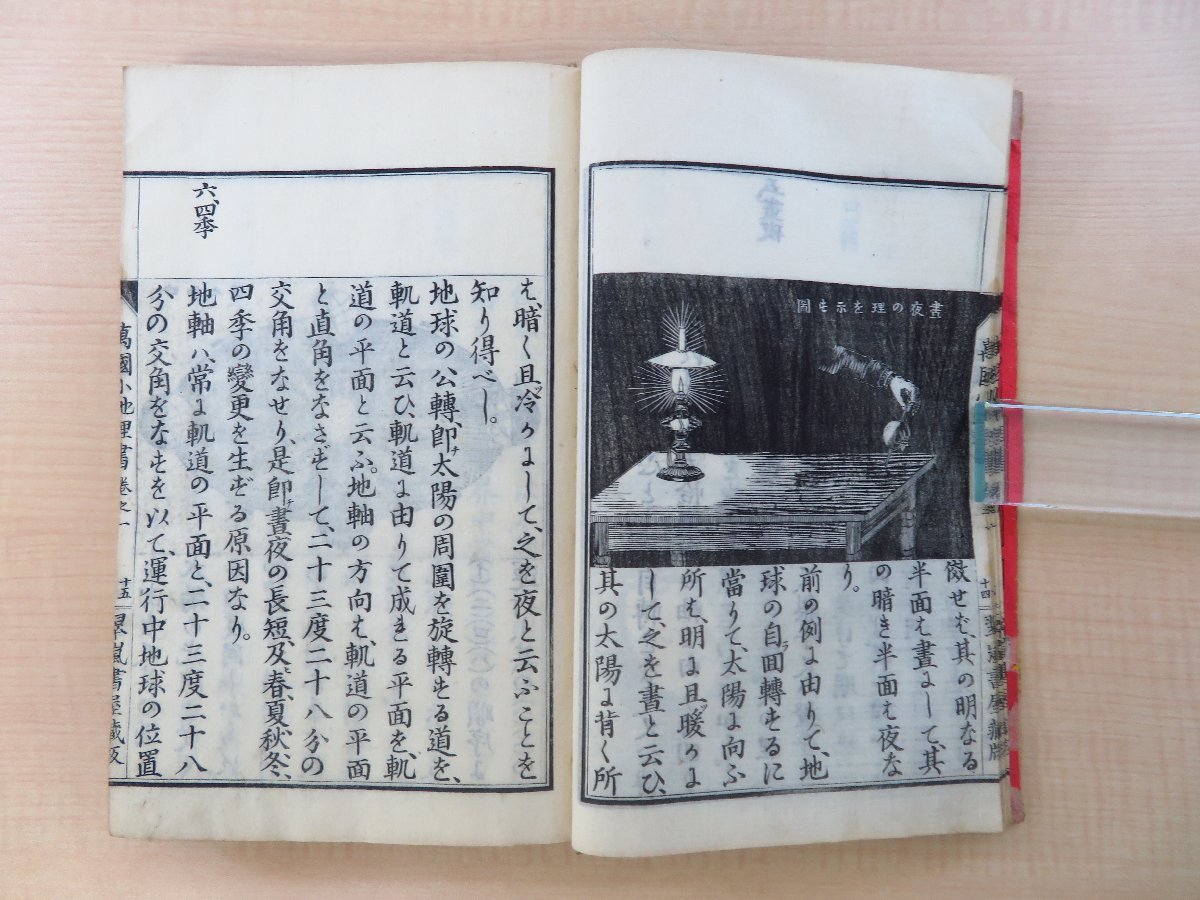 晝夜の理を示す圖
做せバ、其の明なる
半面は晝にして、其
の暗き半面は夜な
り。
前の例に由りて、地
球の自囘轉するに
當りて、太陽に向ふ
所は、明に且暖かに
して、之を晝と云ひ、
其の太陽に背く所
は、暗く且冷かにして、之を夜と云ふことを
知り得べし。
六、四季
地球の公轉、卽太陽の周圍を旋轉する道を、
軌道と云ひ、軌道に由りて成れる平面を、軌
道の平面と云ふ。地軸の方向は、軌道の平面
と直角をなさずして、二十三度二十八分の
交角をなせり、是卽晝夜の長短、及春、夏、秋、冬、
四季の變更を生ずる原因なり。
地軸ハ、常に軌道の平面と、二十三度二十八
分の交角をなすを以て、運行中地球の位置
萬國小地理書卷之一
十五
翠嵐書屋藏板